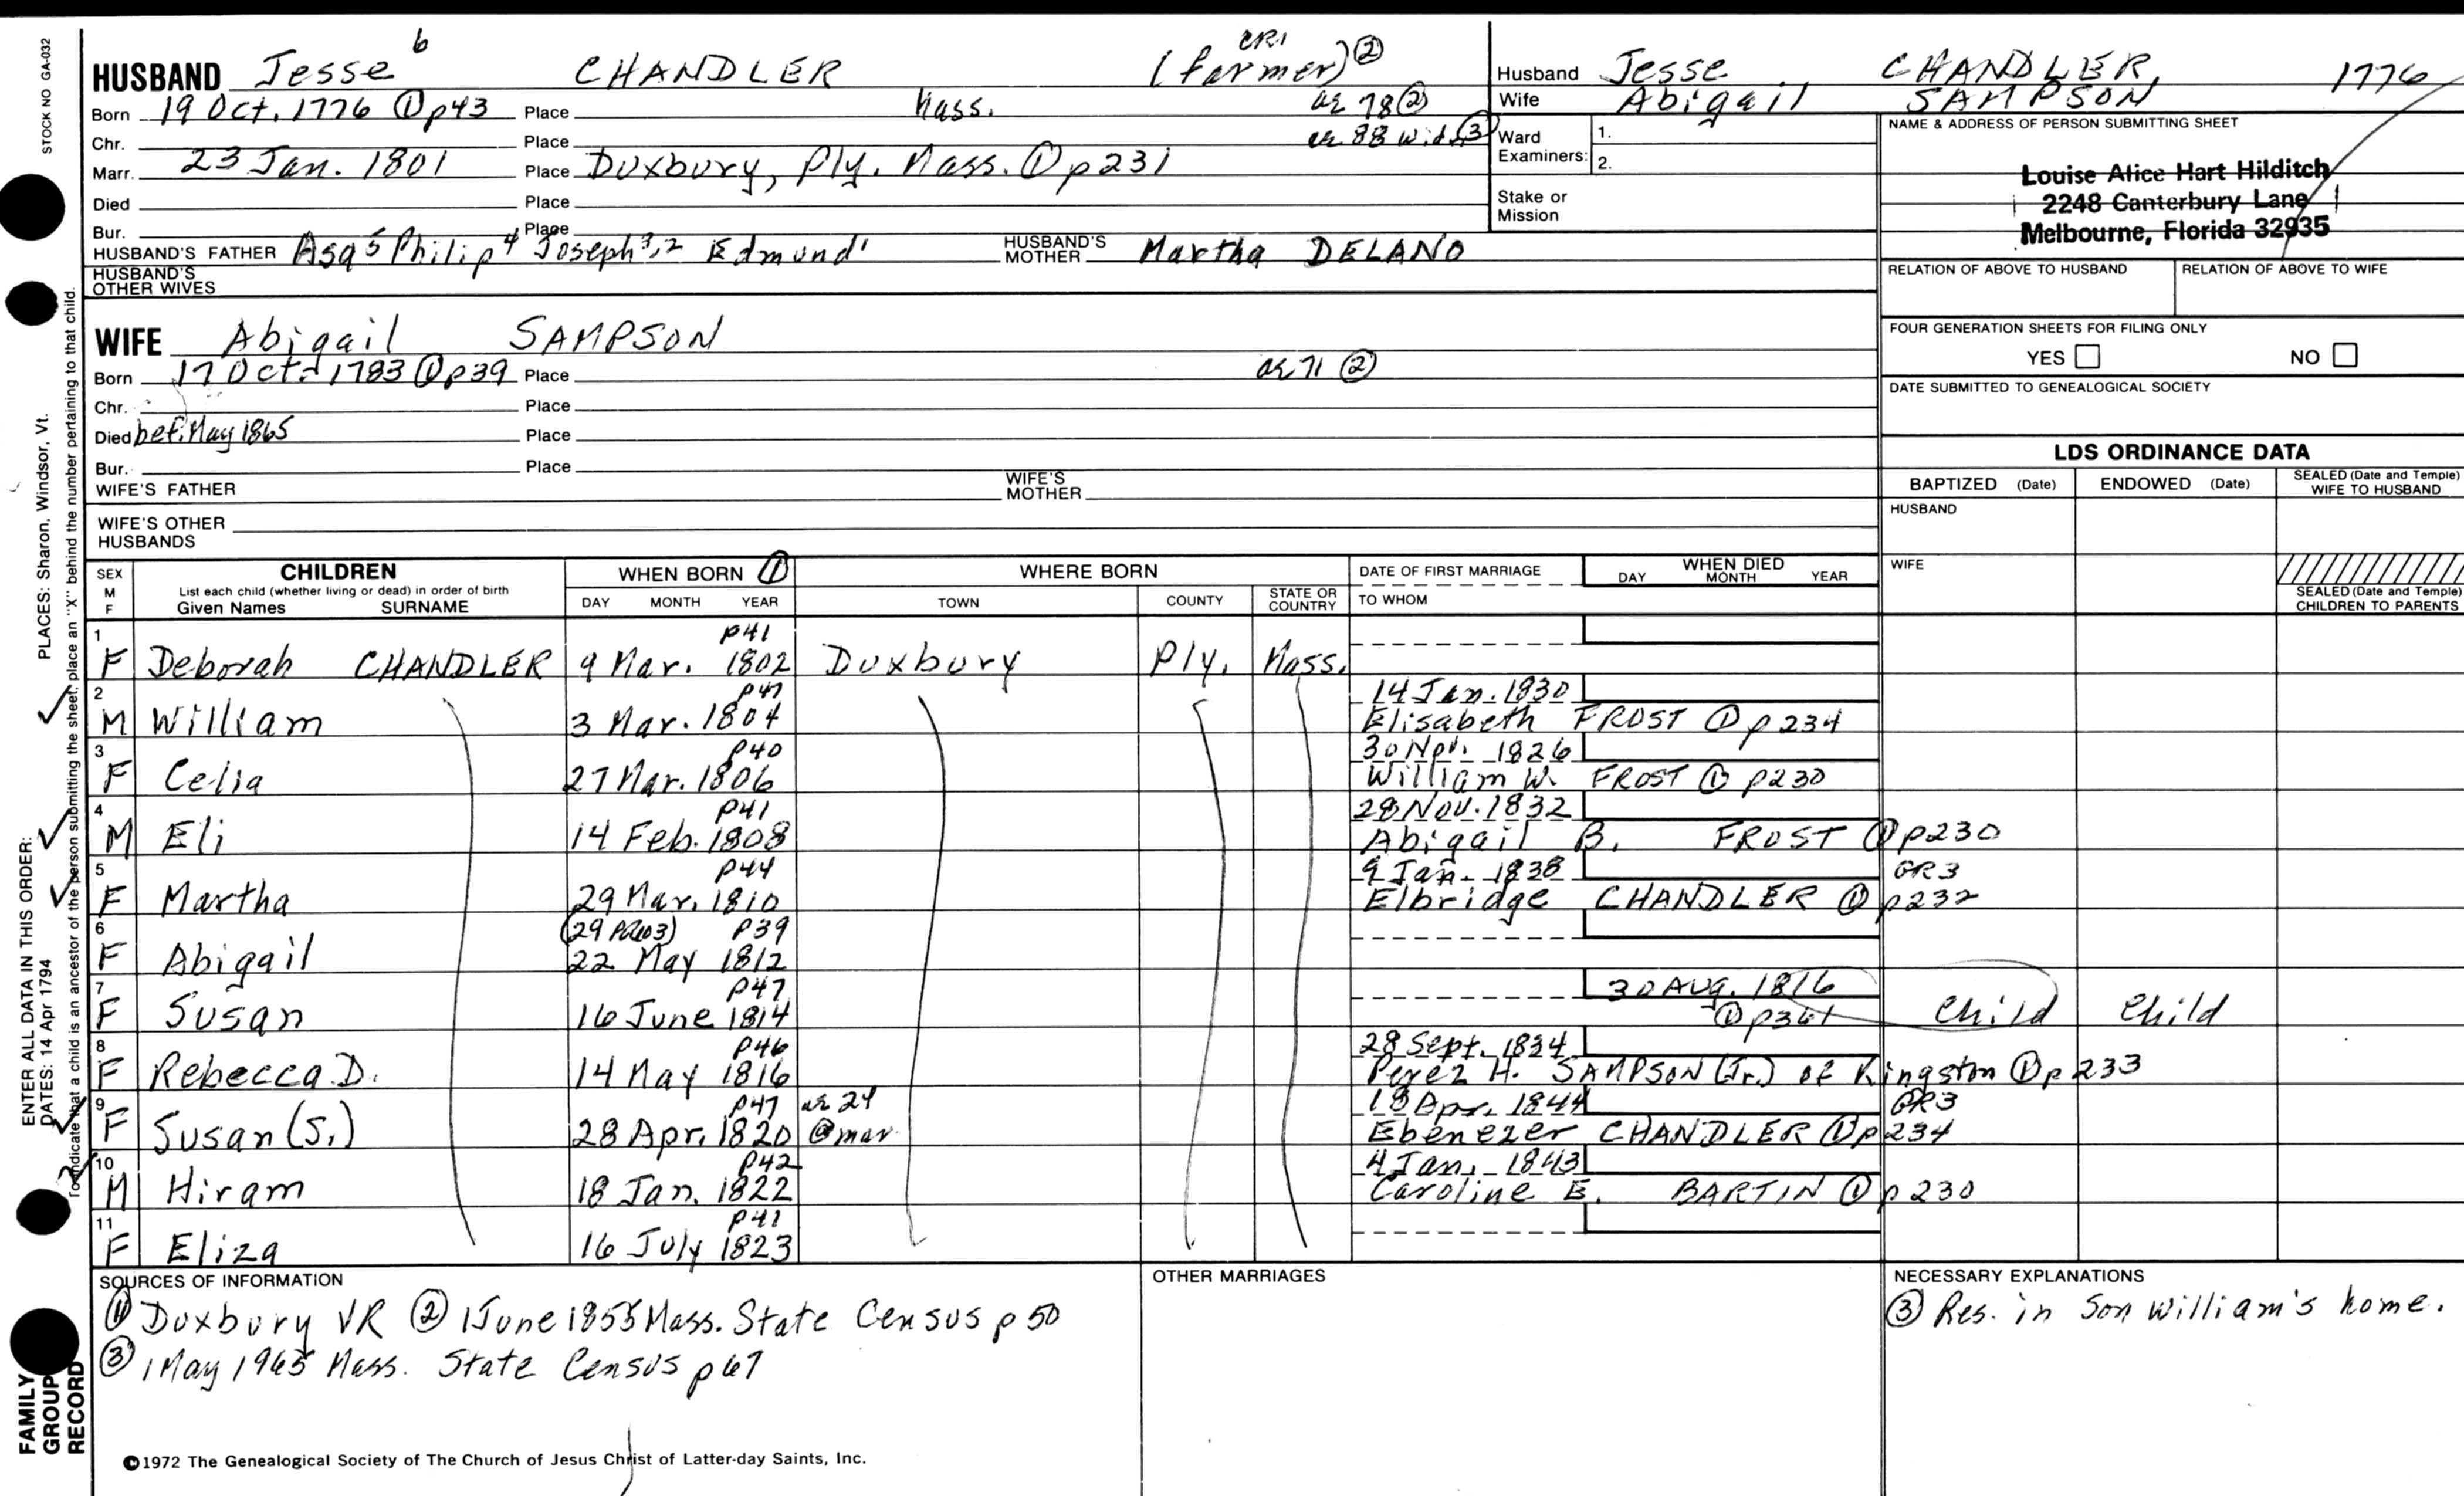 STOCK NO GA-032
PLACES: Sharon, Windsor, Vt.
ENTER ALL DATA IN THIS ORDER:
DATES: 14 Apr 1794
To indicate that a child is an ancestor of the person submitting the sheet, place an "X" behind the number pertaining to that child.
FAMILY
GROUP
RECORD
HUSBAND Jesse 6 CHANDLER (farmer) CR1 ②
Born 19 Oct. 1776 ① p43 Place Mass. ae 78 ②
Chr. Place ae 88 wid. ③
Marr. 23 Jan. 1801 Place Duxbury, Ply. Mass. ① p231
Died Place
Bur. Place
HUSBAND'S FATHER Asa 5 Philip 4 Joseph 3,2 Edmund 1 HUSBAND'S MOTHER Martha DELANO
HUSBAND'S OTHER WIVES
WIFE Abigail SAMPSON
Born 17 Oct. 1783 ① p39 Place ae 71 ②
Chr. Place
Died bef. May 1865 Place
Bur. Place
WIFE'S FATHER WIFE'S MOTHER
WIFE'S OTHER HUSBANDS
Husband Jesse CHANDLER, 1776
Wife Abigail SAMPSON
Ward Examiners: 1.
2.
Stake or Mission
NAME & ADDRESS OF PERSON SUBMITTING SHEET
Louise Alice Hart Hilditch
2248 Canterbury Lane
Melbourne, Florida 32935
RELATION OF ABOVE TO HUSBAND RELATION OF ABOVE TO WIFE
FOUR GENERATION SHEETS FOR FILING ONLY
YES NO
DATE SUBMITTED TO GENEALOGICAL SOCIETY
LDS ORDINANCE DATA
BAPTIZED (Date) ENDOWED (Date) SEALED (Date and Temple) WIFE TO HUSBAND
HUSBAND
WIFE
SEALED (Date and Temple) CHILDREN TO PARENTS
SEX M F CHILDREN WHEN BORN ① WHERE BORN DATE OF FIRST MARRIAGE WHEN DIED
List each child (whether living or dead) in order of birth
Given Names SURNAME DAY MONTH YEAR TOWN COUNTY STATE OR COUNTRY TO WHOM DAY MONTH YEAR
1 p41
F Deborah CHANDLER 9 Mar. 1802 Duxbury Ply. Mass.
2 p47 14 Jan. 1830
M William 3 Mar. 1804 Elisabeth FROST ① p234
3 p40 30 Nov. 1826
F Celia 27 Mar. 1806 William W. FROST ① p230
4 p41 28 Nov. 1832
M Eli 14 Feb. 1808 Abigail B. FROST ① p230
5 p44 9 Jan. 1838 GR3
F Martha 29 Mar. 1810 Elbridge CHANDLER ① p232
6 (29 PR103) p39
F Abigail 22 May 1812
7 p47 30 Aug. 1816
F Susan 16 June 1814 ① p361 Child Child
8 p46 28 Sept. 1834
F Rebecca D. 14 May 1816 Perez H. SAMPSON (Jr.) of Kingston ① p233
9 p47 ae 24 18 Apr. 1844 GR3
F Susan (S.) 28 Apr. 1820 @ mar Ebenezer CHANDLER ① p234
10 p42 4 Jan. 1843
M Hiram 18 Jan. 1822 Caroline E. BARTIN ① p230
11 p41
F Eliza 16 July 1823
SOURCES OF INFORMATION
① Duxbury VR ② 1 June 1855 Mass. State Census p 50
③ 1 May 1965 Mass. State Census p 67
OTHER MARRIAGES
NECESSARY EXPLANATIONS
③ Res. in Son William's home.
©1972 The Genealogical Society of The Church of Jesus Christ of Latter-day Saints, Inc.